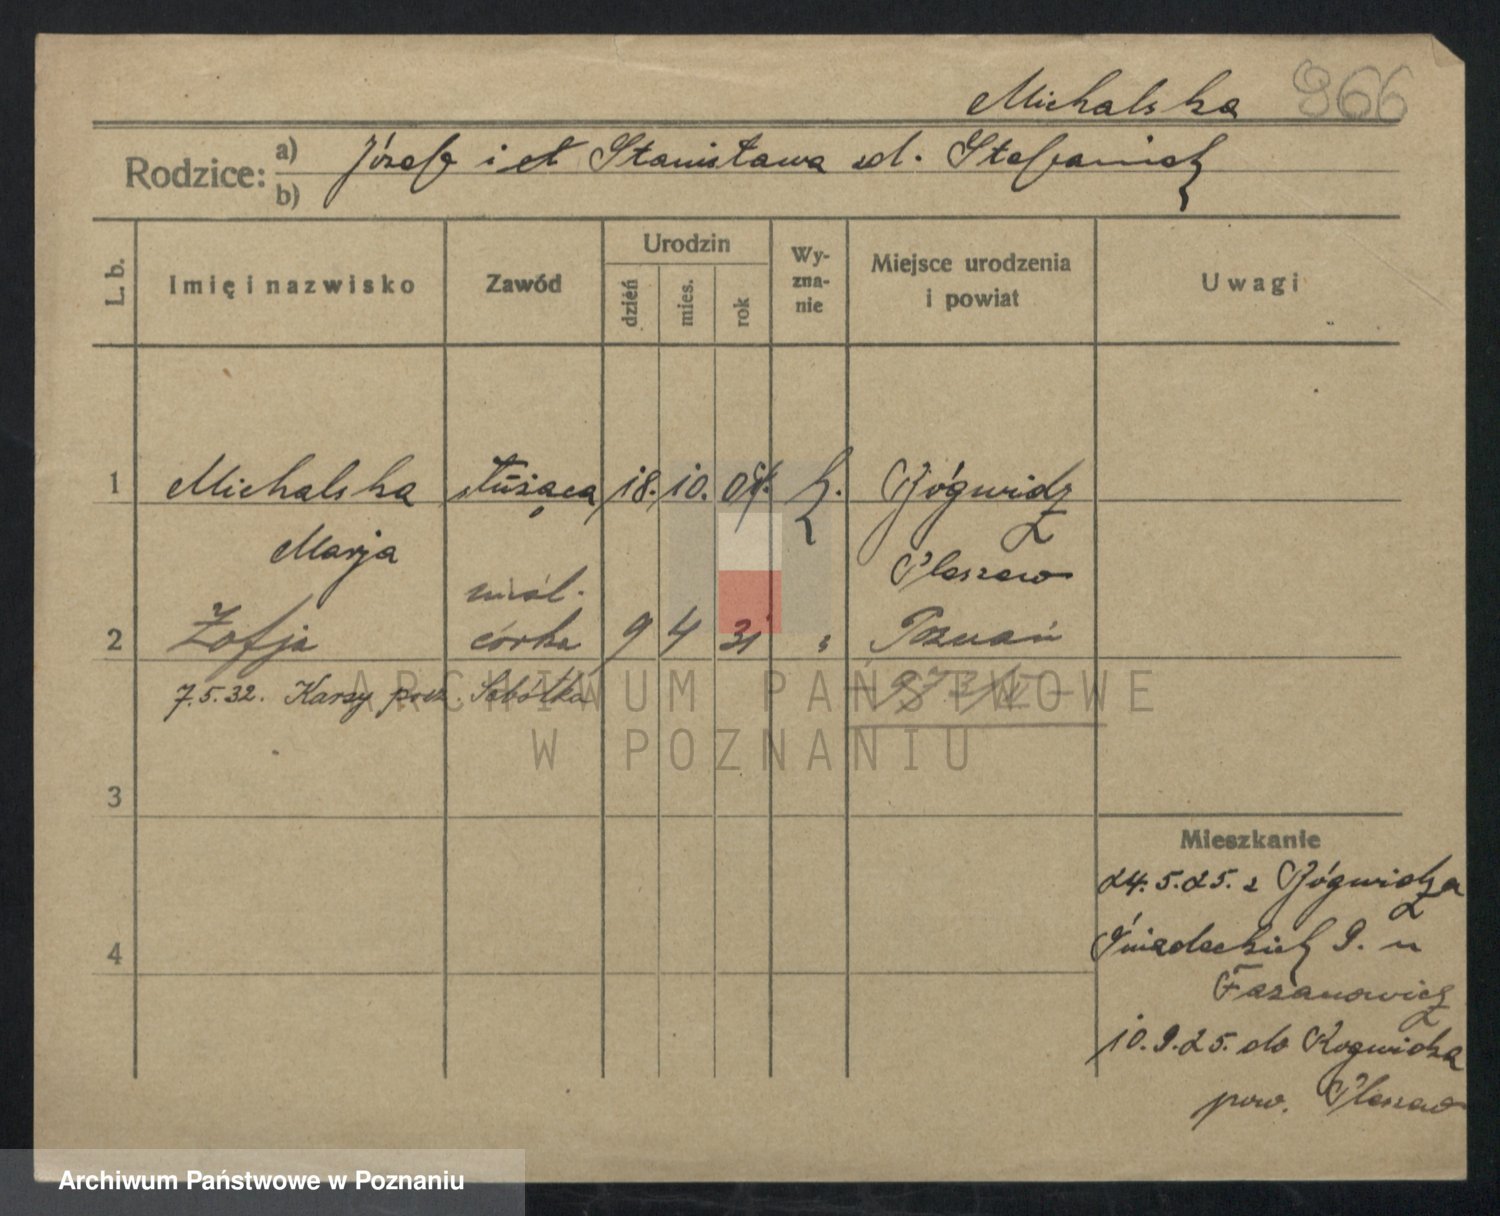 Michalska 966
Rodzice: a) Józef i et Stanisława zd. Stefaniak
b)
L. b. Imię i nazwisko Zawód Urodzin dzień mies. rok Wyznanie Miejsce urodzenia i powiat Uwagi
1 Michalska służąca 18. 10. 04. k. Rógwidz
Marja Pleszew
nieśl.
2 Zofja córka 9 4 31 " Poznań
7.5.32. Karsy pocz. Sobótka
3
Mieszkanie
24.5.25. z Rógwidza
4
Śniadeckich 9. u
10.9.25. do Rogwidza
pow. Pleszew
ARCHIWUM PAŃSTWOWE
W POZNANIU
Archiwum Państwowe w Poznaniu